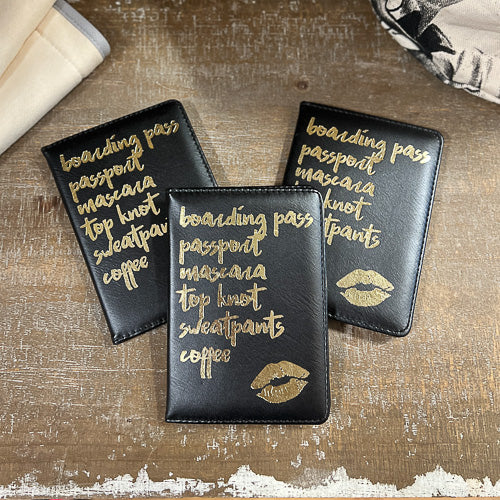 boarding pass
passport
mascara
top knot
sweatpan
coffee
boarding pass
passport
mascara
top knot
sweatpants
coffee
boarding pass
passport
mascara
knot
tpants